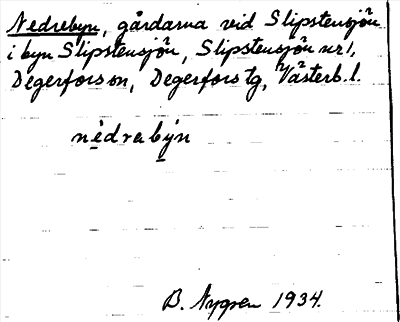 Nedrebyn, gårdarna vid Slipstensjön
i byn Slipstensjön, Slipstensjön nr 1,
Degerfors sn, Degerfors tg, Västerb. l.
nedrabyn
B. Nygren 1934.